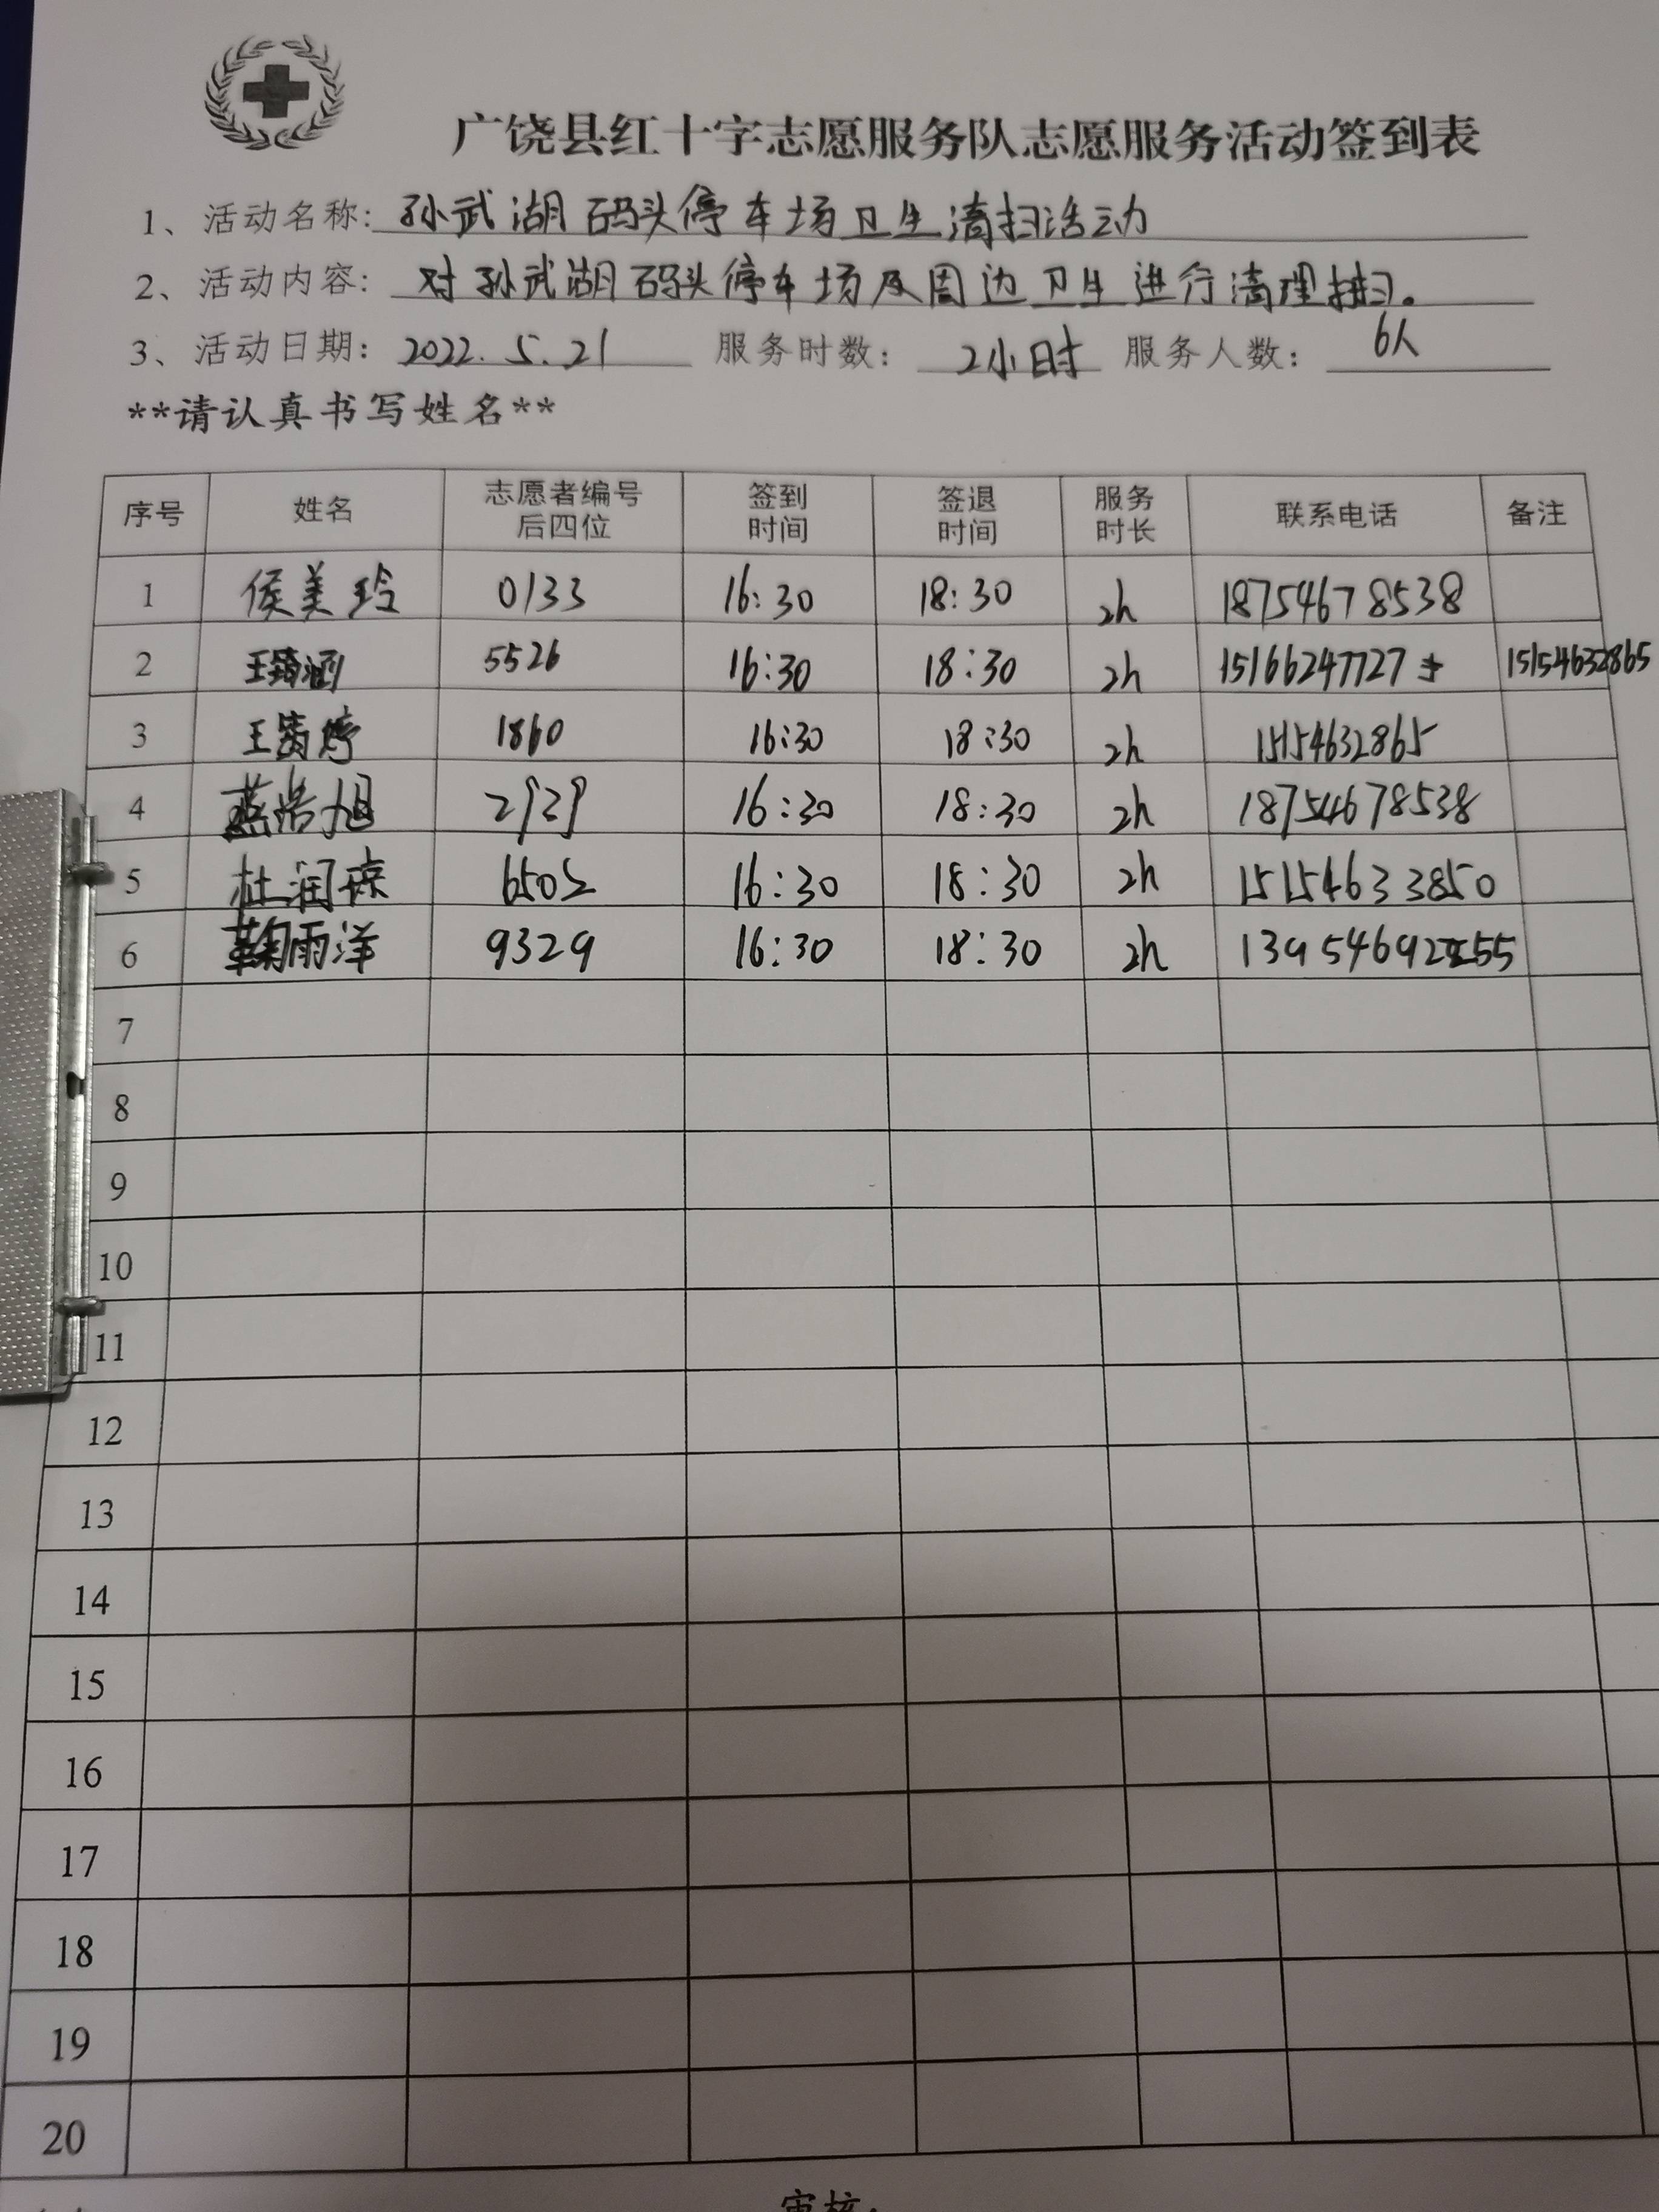 广饶县红十字志愿服务队志愿服务活动签到表
1、活动名称: 孙武湖码头停车场卫生清扫活动
2、活动内容: 对孙武湖码头停车场及周边卫生进行清理打扫。
3、活动日期: 2022.5.21 服务时数: 2小时 服务人数: 6人
**请认真书写姓名**
序号 姓名 志愿者编号后四位 签到时间 签退时间 服务时长 联系电话 备注
1 侯美玲 0133 16:30 18:30 2h 18754678538
2 5526 16:30 18:30 2h 15166247727 15154632865
3 1860 16:30 18:30 2h 15154632865
4 燕浩旭 2929 16:30 18:30 2h 18754678538
5 杜润琼 6505 16:30 18:30 2h 15154633850
6 鞠雨洋 9329 16:30 18:30 2h
7
8
9
10
11
12
13
14
15
16
17
18
19
20
审核: